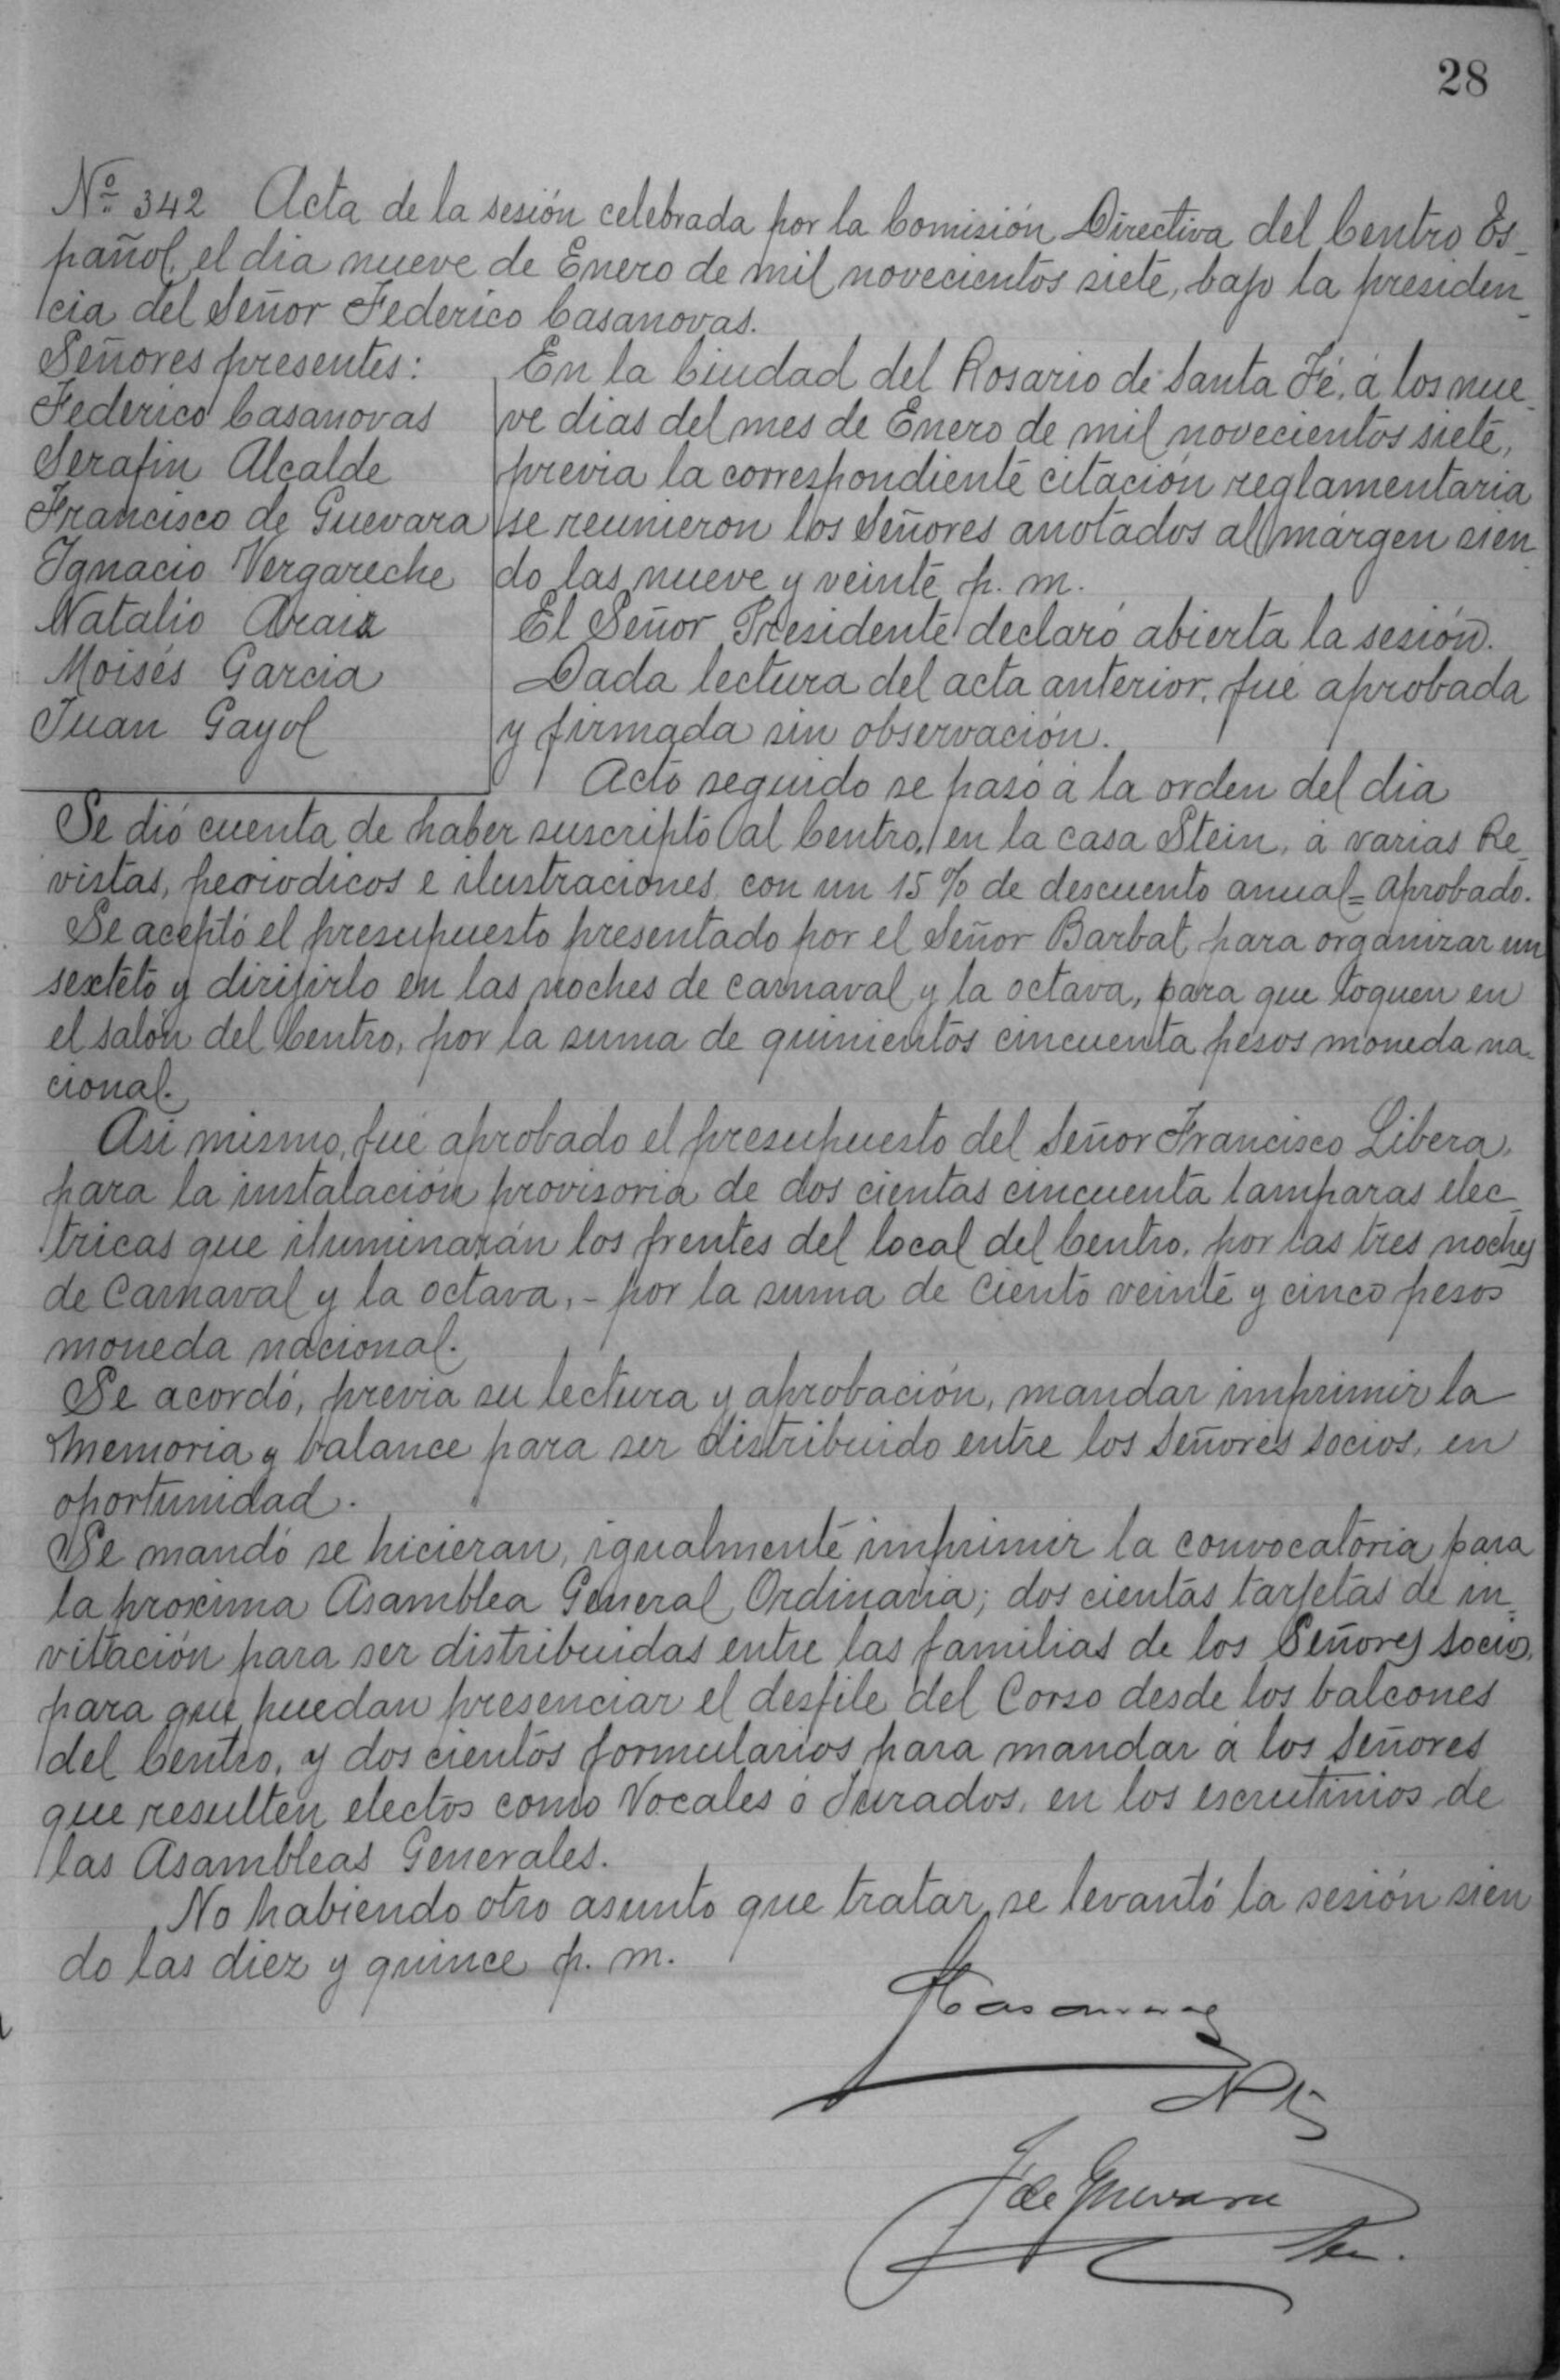 28
Nº 342 Acta de la sesión celebrada por la Comisión Directiva del Centro Es-
pañol, el dia nueve de Enero de mil novecientos siete, bajo la presiden-
cia del Señor Federico Casanovas.
Señores presentes:
Federico Casanovas
Serafin Alcalde
Francisco de Guevara
Ignacio Vergareche
Natalio Araiz
Moisés Garcia
Juan Gayol
En la Ciudad del Rosario de Santa Fé, á los nue-
ve dias del mes de Enero de mil novecientos siete,
previa la correspondiente citación reglamentaria
se reunieron los Señores anotados al márgen sien-
do las nueve y veinte p. m.
El Señor Presidente declaró abierta la sesión.
Dada lectura del acta anterior, fué aprobada
y firmada sin observación.
Acto seguido se pasó á la orden del dia
Se dió cuenta de haber suscripto al Centro, en la casa Stein, á varias Re-
vistas, periodicos e ilustraciones, con un 15% de descuento anual= aprobado.
Se aceptó el presupuesto presentado por el Señor Barbat para organizar un
sexteto y dirijirlo en las noches de carnaval y la octava, para que toquen en
el salón del Centro, por la suma de quinientos cincuenta pesos moneda na-
cional.
Asi mismo, fué aprobado el presupuesto del Señor Francisco Libera,
para la instalación provisoria de dos cientas cincuenta lamparas elec-
tricas que iluminarán los frentes del local del Centro, por las tres noches
de Carnaval y la octava, - por la suma de ciento veinte y cinco pesos
moneda nacional.
Se acordó, previa su lectura y aprobación, mandar imprimir la
Memoria y balance para ser distribuido entre los Señores socios, en
oportunidad.
Se mandó se hicieran, igualmente imprimir la convocatoria para
la proxima Asamblea General Ordinaria; dos cientas tarjetas de in-
vitación para ser distribuidas entre las familias de los Señores socios,
para que puedan presenciar el desfile del Corso desde los balcones
del Centro, y dos cientos formularios para mandar á los Señores
que resulten electos como Vocales ó Jurados, en los escrutinios de
las Asambleas Generales.
No habiendo otro asunto que tratar, se levantó la sesión sien
do las diez y quince p. m.
FCasanovas
F de Guevara